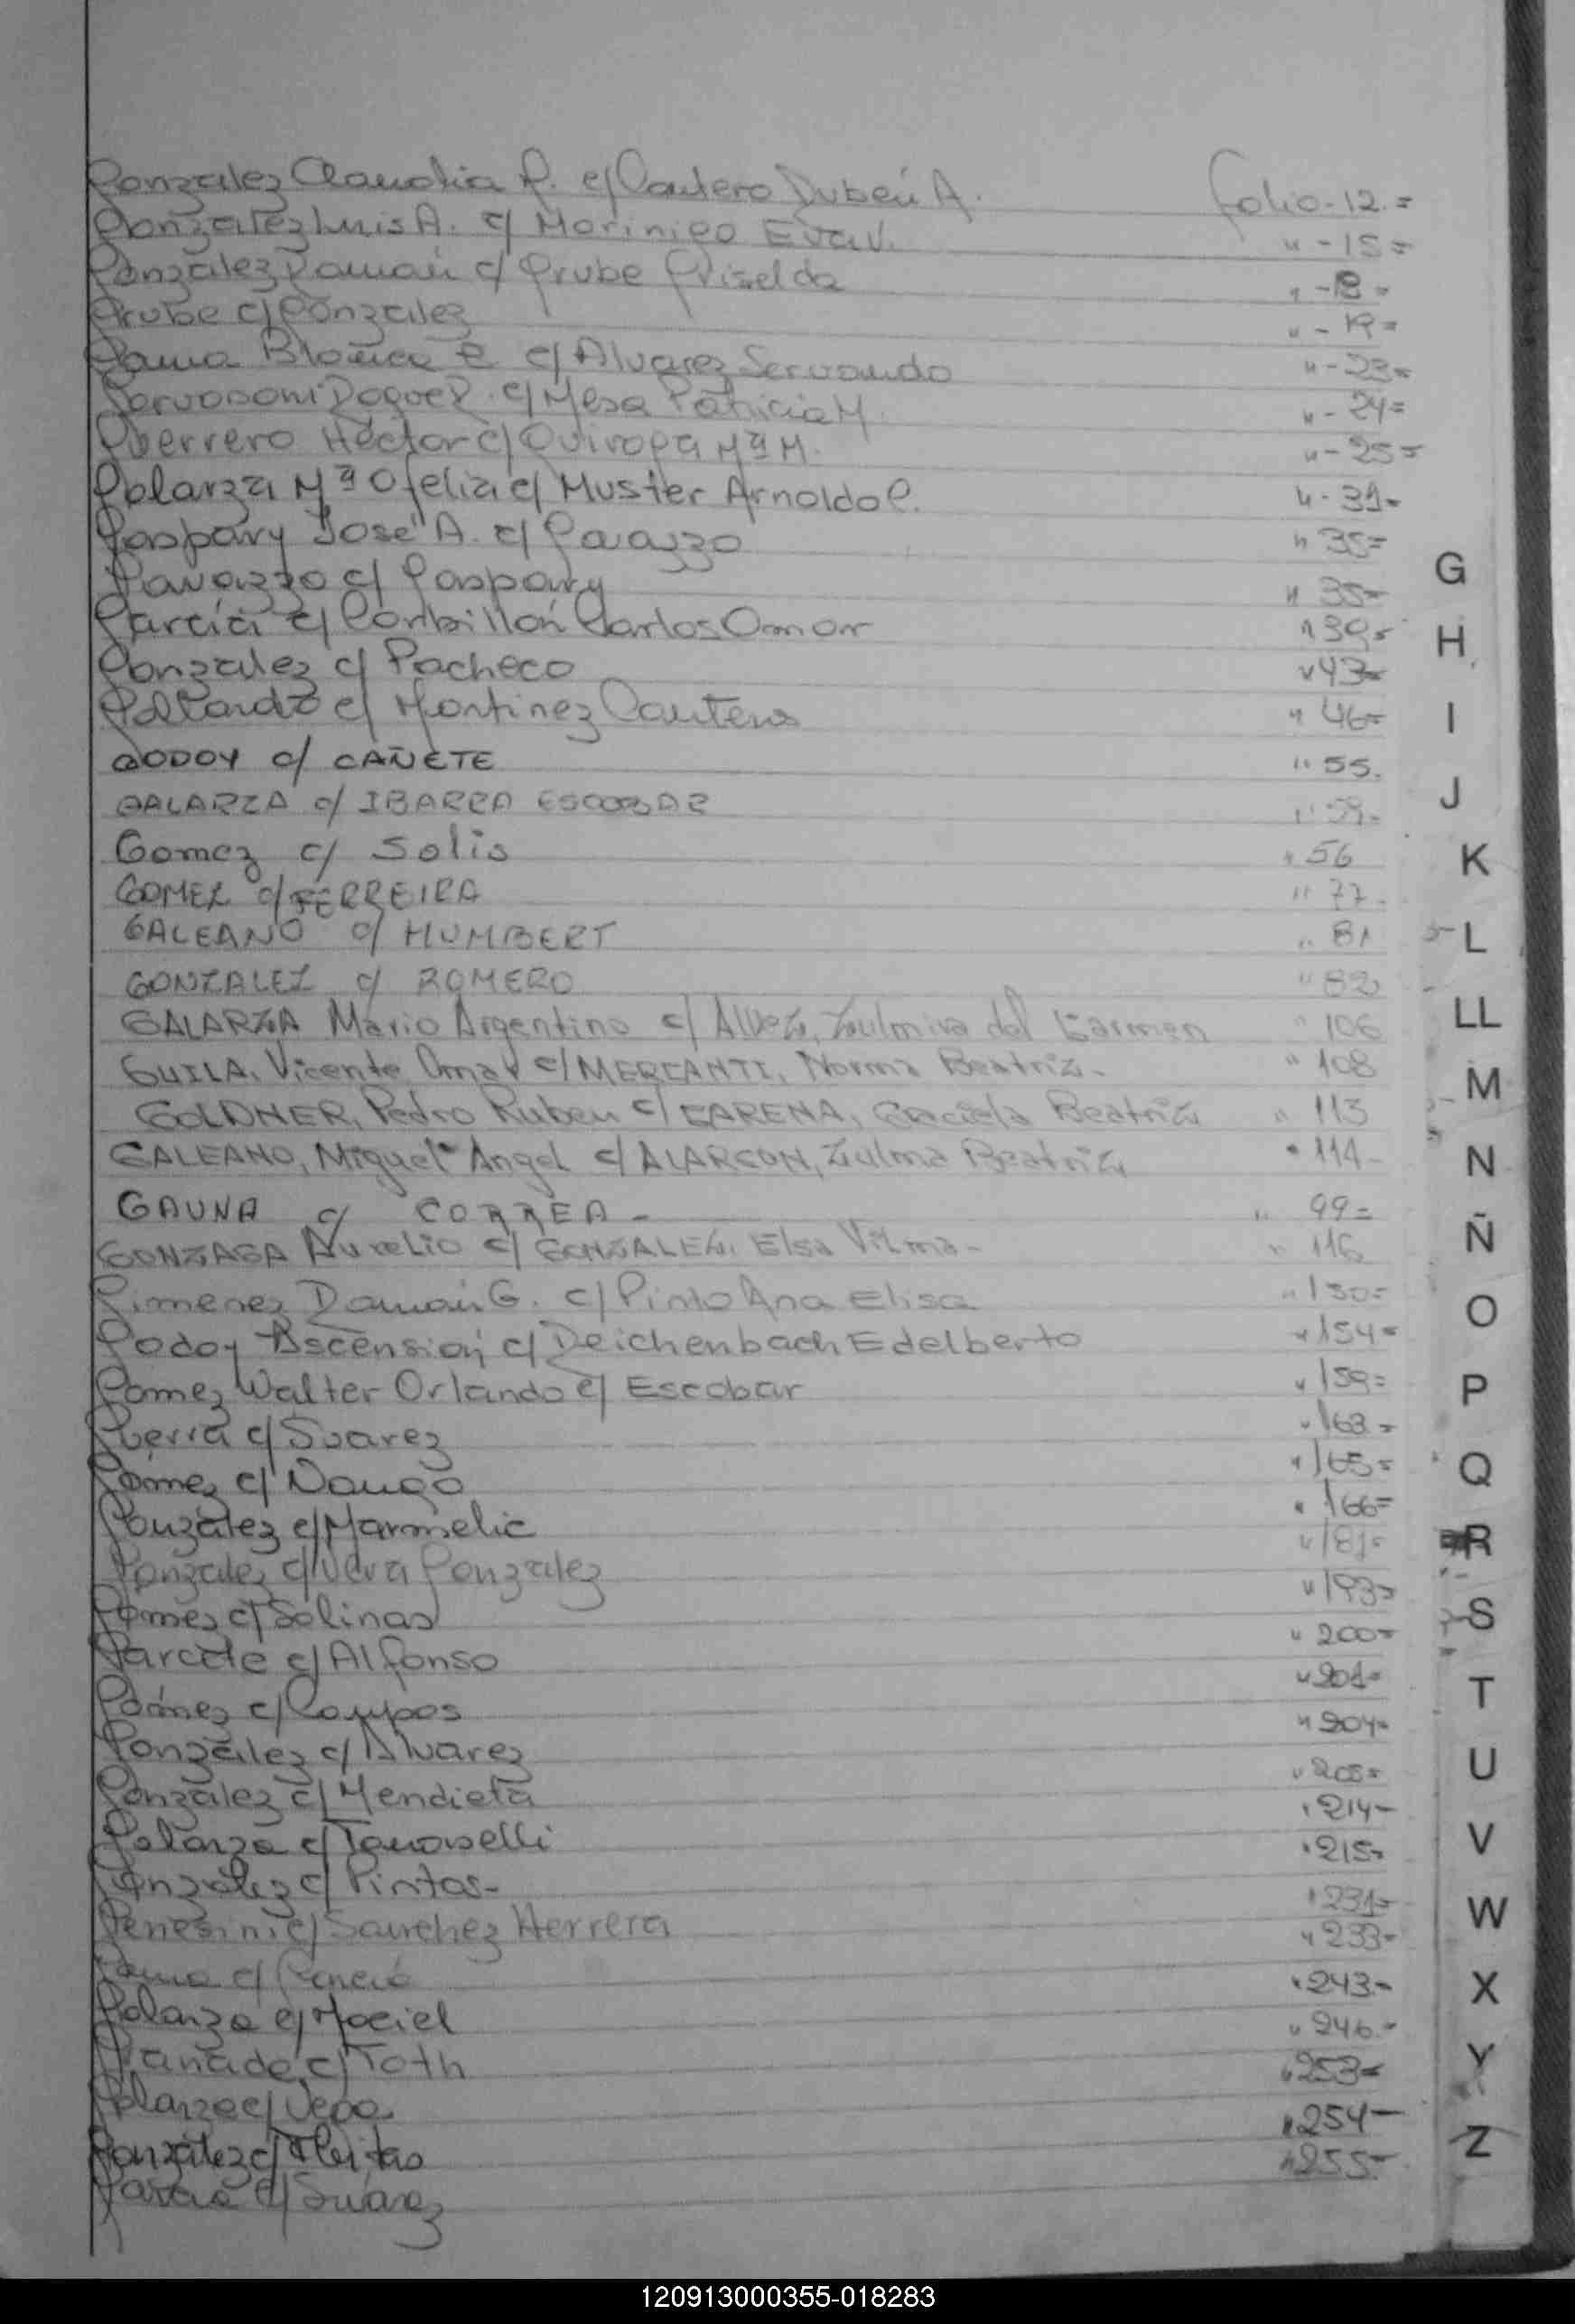 Gonzalez Claudia P. c/ Cantero Rubén A. folio-12.=
Gonzalez Luis A. c/ Morinigo Eva V. " -15=
Gonzalez Ramón c/ Grube Griselda " -18=
Grube c/ Gonzalez " -19=
Gauna Blanca E c/ Alvarez Servando " -23=
Roque R. c/ Mesa Patricia M. " -24=
Guerrero Héctor c/ Quiroga Mª M. " -25=
Galarza Mª Ofelia c/ Muster Arnoldo C. " -31=
Gaspary José A. c/ " 35=
c/ Gaspary " 35=
García c/ Corbillón Carlos Omar " 39=
Gonzalez c/ Pacheco " 43=
Gallardo c/ Martinez Cantero " 46=
GODOY c/ CAÑETE " 55.
GALARZA c/ IBARRA ESCOBAR " 59-
Gomez c/ Solis " 56
GOMEZ c/ FERREIRA " 77-
GALEANO c/ HUMBERT " 81
GONZALEZ c/ ROMERO " 82
GALARZA Mario Argentino c/ Alvez, Zulmira del Carmen " 106
GUILA, Vicente Omar c/ MERCANTI, Norma Beatriz- " 108
GOLDNER, Pedro Ruben c/ CARENA, Graciela Beatriz " 113
GALEANO, Miguel Angel c/ ALARCON, Zulma Beatriz " 114-
GAUNA c/ CORREA- " 99=
GONZAGA Aurelio c/ GONZALEZ, Elsa Vilma- " 116
Gimenez Ramón G. c/ Pinto Ana Elisa " 130=
Godoy Ascensión c/ Reichenbach Edelberto " 154=
Gomez Walter Orlando c/ Escobar " 159=
Guerra c/ Suarez " 163=
Gómez c/ " 165=
Gonzalez c/ " 166=
Gonzalez c/ Vera Gonzalez " 181=
Gomez c/ Salinas " 193=
Garcete c/ Alfonso " 200=
Gómez c/ Campos " 201=
Gonzalez c/ Alvarez " 204=
Gonzalez c/ Mendieta " 205=
Galarza c/ " 214-
Gonzalez c/ Pintos- " 215=
Genesini c/ Sanchez Herrera " 231=
c/ " 233=
Galarza c/ Maciel " 243-
c/ Toth " 246=
Galarza c/ Vega " 253=
Gonzalez c/ Fleitas " 254-
Garcia c/ Suárez " 255-
G
H
I
J
K
L
LL
M
N
Ñ
O
P
Q
R
S
T
U
V
W
X
Y
Z
120913000355-018283